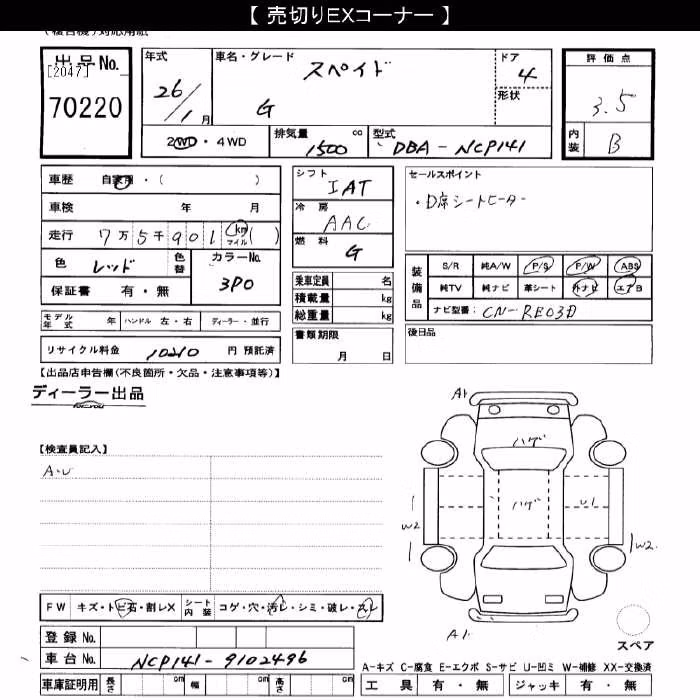 【 売切りEXコーナー 】
(複合機)対応用紙
出品No.
[2047]
70220
年式
26/1月
車名・グレード
スペイド
G
ドア
4
形状
評価点
3.5
内装
B
2WD・4WD
排気量
1500 cc
型式
DBA-NCP141
車歴 自家用・( )
車検 年 月
走行 7万5千901 km マイル ( )
色 レッド 色替
カラーNo. 3P0
保証書 有・無
モデル年式 年 ハンドル 左・右 ディーラー・並行
リサイクル料金 10210 円 預託済
シフト
IAT
冷房
AAC
燃料
G
乗車定員 名
積載量 kg
総重量 kg
書類期限
月 日
セールスポイント
・D席シートヒーター
装備品
S/R 純A/W P/S P/W ABS
純TV 純ナビ 革シート 外ナビ エアB
ナビ型番: CN-RE03D
後日品
【出品店申告欄(不良箇所・欠品・注意事項等)】
ディーラー出品
【検査員記入】
A・U
A1
ハゲ
ハゲ
U1
W2
W2
A1
スペア
FW キズ・トビ石・割レX シート内装 コゲ・穴・汚レ・シミ・破レ・スレ
登録No.
車台No. NCP141-9102496
車庫証明用 長さ cm 幅 cm 高さ cm
A-キズ C-腐食 E-エクボ S-サビ U-凹ミ W-補修 XX-交換済
工具 有・無 ジャッキ 有・無